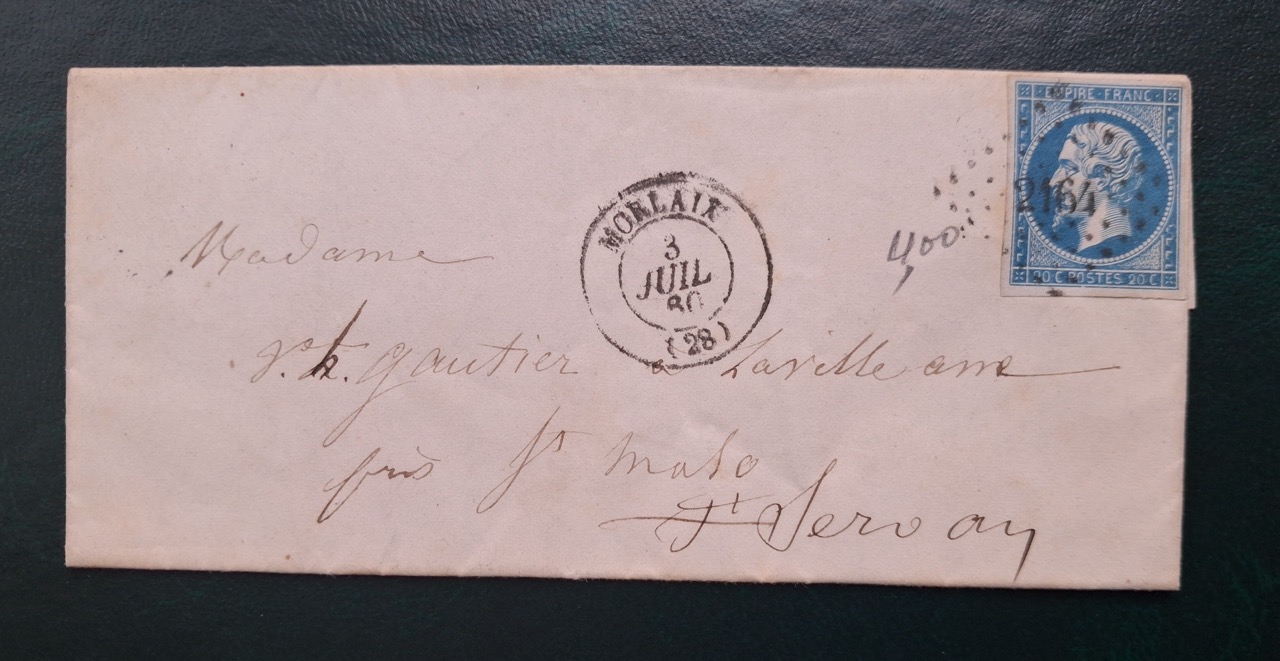 EMPIRE FRANC
2164
20 C POSTES 20 C
MORLAIX
3
JUIL
60
(28)
400
Madame
Gautier a Lavilleanne
près St Malo
St Servan